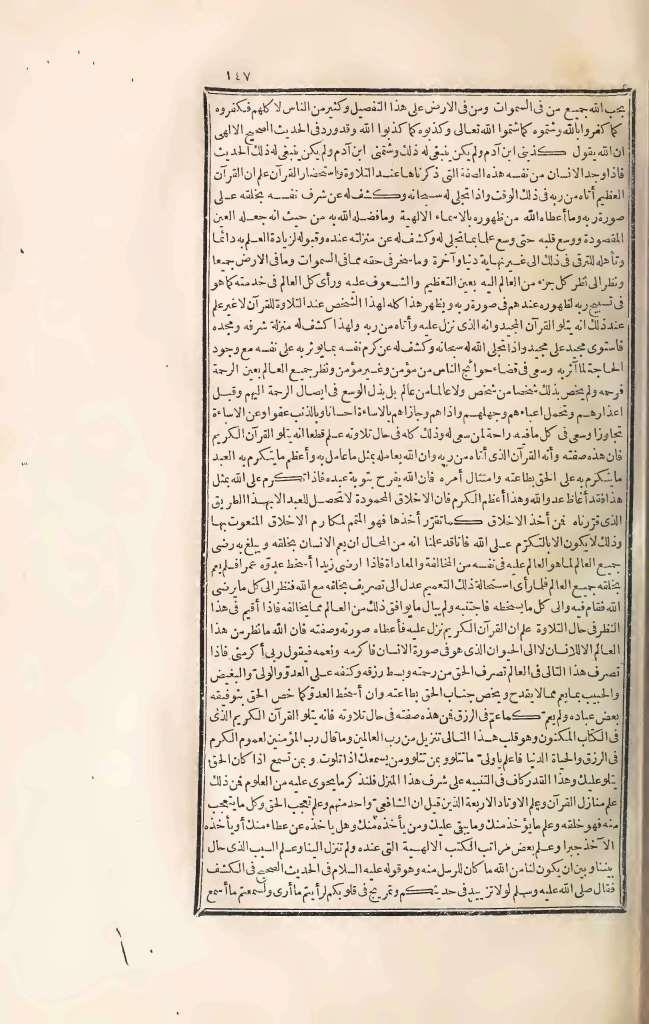 ١٤٧
يحب الله جميع من فى السموات ومن فى الارض على هذا التفصيل وكثير من الناس لا كلهم فكفروه
كما كفروا بالله وشتموه كما شتموا الله تعالى وكذبوه كما كذبوا الله وقد ورد فى الحديث الصحيح الالهى
ان الله يقول كذبنى ابن آدم ولم يكن ينبغى له ذلك وشتمنى ابن آدم ولم يكن ينبغى له ذلك الحديث
فاذا وجد الانسان من نفسه هذه الصفة التى ذكرناها عند التلاوة واستحضار القرآن علم ان القرآن
العظيم أتاه من ربه فى ذلك الوقت واذا تجلى له سبحانه وكشف له عن شرف نفسه بخلقه على
صورة ربه وما أعطاه الله من ظهوره بالاسماء الالهية وما فضله الله به من حيث انه جعله العين
المقصودة ووسع قلبه حتى وسع علما بما تجلى له وكشف له عن منزلته عنده وقبوله لزيادة العلم به دائما
وتأهله للترقى فى ذلك الى غير نهاية دنيا وآخرة وما سخر فى حقه مما فى السموات وما فى الارض جميعا
ونظر الى نظر كل جزء من العالم اليه بعين التعظيم والشفوف عليه ورأى كل العالم فى خدمته كما هو
فى تسبيح ربه لظهوره عندهم فى صورة ربه ويظهر هذا كله لهذا الشخص عند التلاوة للقرآن لا غير علم
عند ذلك انه يتلو القرآن المجيد وانه الذى نزل عليه وأتاه من ربه ولهذا كشف له منزلة شرفه ومجده
فاستوى مجيد على مجيد واذا تجلى الله له سبحانه وكشف له عن كرم نفسه بما يوثر به على نفسه مع وجود
الحاجة لما آثر به وسعى فى قضاء حوائج الناس من مؤمن وغير مؤمن ونظر جميع العالم بعين الرحمة
فرحمه ولم يخص بذلك شخصا من شخص ولا عالما من عالم بل بذل الوسع فى ايصال الرحمة اليهم وقبل
اعذارهم وتحمل اعباءهم وجهلهم واذاهم وجازاهم بالاساءة احسانا وبالذنب عفوا وعن الاساءة
تجاوزا وسعى فى كل ما فيه راحة لمن سعى له وذلك كله فى حال تلاوته علم قطعا انه يتلو القرآن الكريم
فان هذه صفته وأنه القرآن الذى أتاه من ربه وان الله يعامله بمثل ما عامل به وأعظم ما يتكرم به العبد
ما يتكرم به على الحق بطاعته وامتثال أمره فان الله يفرح بتوبة عبده فاذا تكرم على الله بمثل
هذا فقد أغاظ عدو الله وهذا أعظم الكرم فان الاخلاق المحمودة لا تحصل للعبد الا بهذا الطريق
الذى قررناه فمن أخذ الاخلاق كما تقرر أخذها فهو المتمم لمكارم الاخلاق المنعوت بها
وذلك لا يكون الا بالتكرم على الله فانا قد علمنا انه من المحال ان يعم الانسان بخلقه ويبلغ به رضى
جميع العالم لما هو العالم عليه فى نفسه من المخالفة والمعاداة فاذا ارضى زيدا أسخط عدوه عمرا فلم يعم
بخلقه جميع العالم فلما رأى استحالة ذلك التعميم عدل الى تصريف بخلقه مع الله فنظر الى كل ما يرضى
الله فقام فيه والى كل ما يسخطه فاجتنبه ولم يبال ما يوافق ذلك من العالم مما يخالفه فاذا أقيم فى هذا
النظر فى حال التلاوة علم ان القرآن الكريم نزل عليه فأعطاه صورته وصفته فان الله ما نظر من هذا
العالم الا للانسان لا الى الحيوان الذى هو فى صورة الانسان فاكرمه ونعمه فيقول ربى أكرمنى فاذا
تصرف هذا التالى فى العالم تصرف الحق من رحمته وبسط رزقه وكنفه على العدو والولى والبغيض
والحبيب بما يعم مما لا يقدح ويخص جناب الحق بطاعته وان أسخط العدو كما خص الحق بتوفيقه
بعض عباده ولم يعم كما عم فى الرزق فمن هذه صفته فى حال تلاوته فانه يتلو القرآن الكريم الذى
فى الكتاب المكنون وهو قلب هذا التالى تنزيل من رب العالمين وما قال رب المؤمنين لعموم الكرم
فى الرزق والحياة الدنيا فاعلم يا ولى ما تتلو وبمن تتلو ومن يسمعك اذا تلوت وبمن تسمع اذا كان الحق
يتلو عليك وهذا القدر كاف فى التنبيه على شرف هذا المنزل فلنذكر ما يحوى عليه من العلوم فمن ذلك
علم منازل القرآن وعلم الاوتاد الاربعة الذين قيل ان الشافعى واحد منهم وعلم تعجب الحق وكل ما يتعجب
منه فهو خلقه وعلم ما يؤخذ منك وما يبقى عليك ومن يأخذه منك وهل يأخذه عن عطاء منك أو يأخذه
الآخذ جبرا وعلم بعض مراتب الكتب الالهية التى عنده ولم تنزل الينا وعلم السبب الذى حال
بيننا وبين ان يكون لنا من الله ما كان للرسل منه وهو قوله عليه السلام فى الحديث الصحيح فى الكشف
فقال صلى الله عليه وسلم لولا تزييد فى حديثكم وتمريج فى قلوبكم لرأيتم ما أرى ولسمعتم ما أسمع